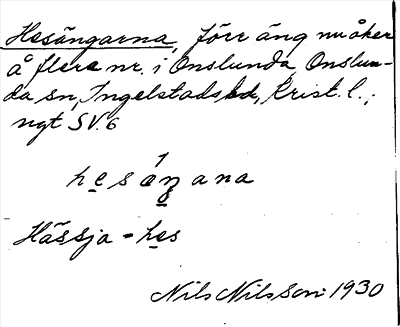 Hesängarna, förr äng nu åker
å flera nr. i Onslunda, Onslun-
da sn, Ingelstads hd, Krist. l.;
ngt SV. 6
hesáŋana
Hässja = hes
Nils Nilsson 1930